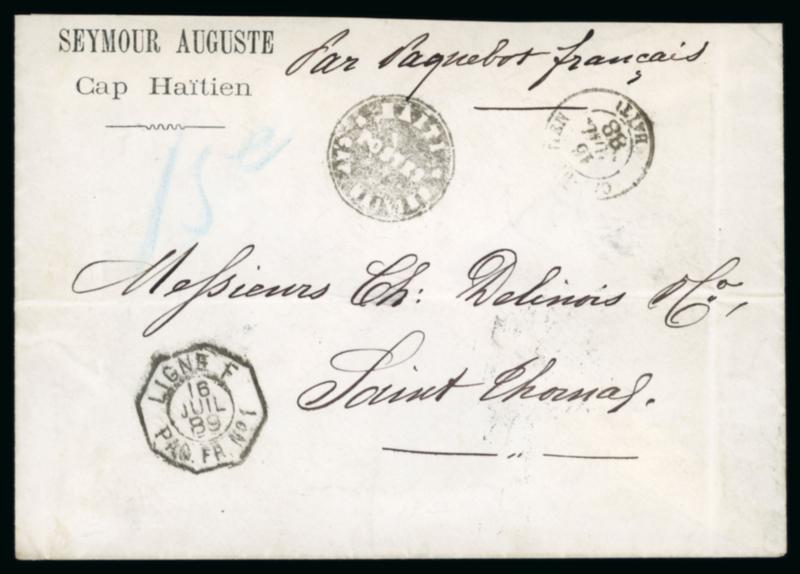 SEYMOUR AUGUSTE
Cap Haïtien
Par Paquebot français
15 c
HAITI
15
JUIL
88
Messieurs Ch: Delinois & Co,
Saint Thomas.
LIGNE F
16
JUIL
89
PAQ. FR. No 1